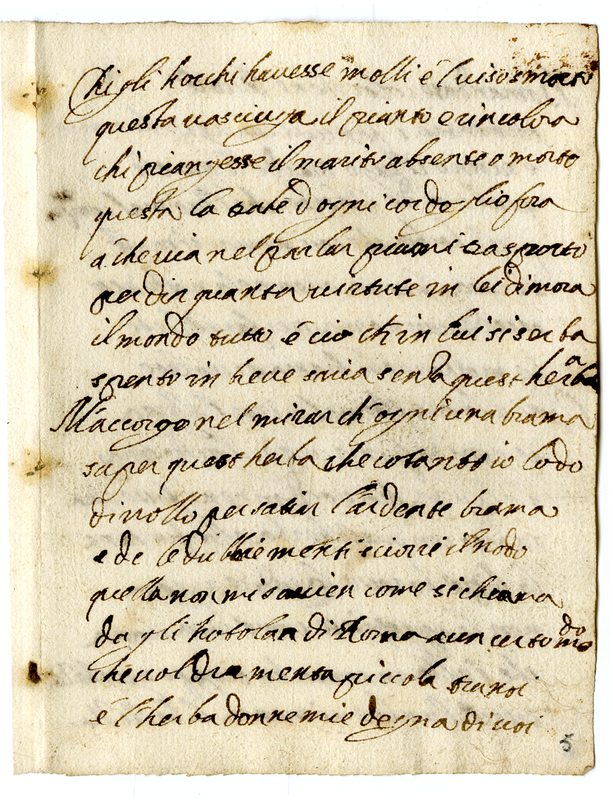 Chi gli hocchi havesse molli é l viso smorto
questa n'asciuga il pianto e rincolora
chi piangesse il marito absente o morto
questa la trahe d ogni cordoglio fora
a che via nel parlar piu mi trasporto
per dir quanta virtute in lei dimora
il mondo tutto é cio ch in lui si serba
spento in breve saria senza quest herba
M'accorgo nel mirar ch ogni una brama
saper quest herba che cotanto io lodo
dirollo per satiar l'ardente brama
e de le dubbie menti sciorre il nodo
quella non mi sovien come si chiama
da gli hortolan di Roma a un certo modo
che vol dir menta piccola
é l'herba donne mie degna di voi
5